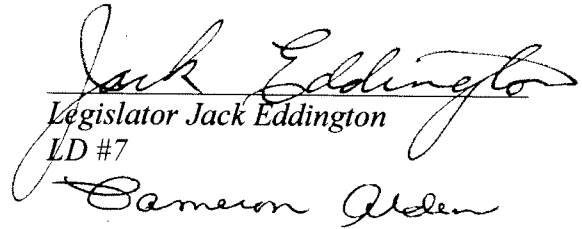 Jack Eddington
Legislator Jack Eddington
LD #7
Cameron Alden